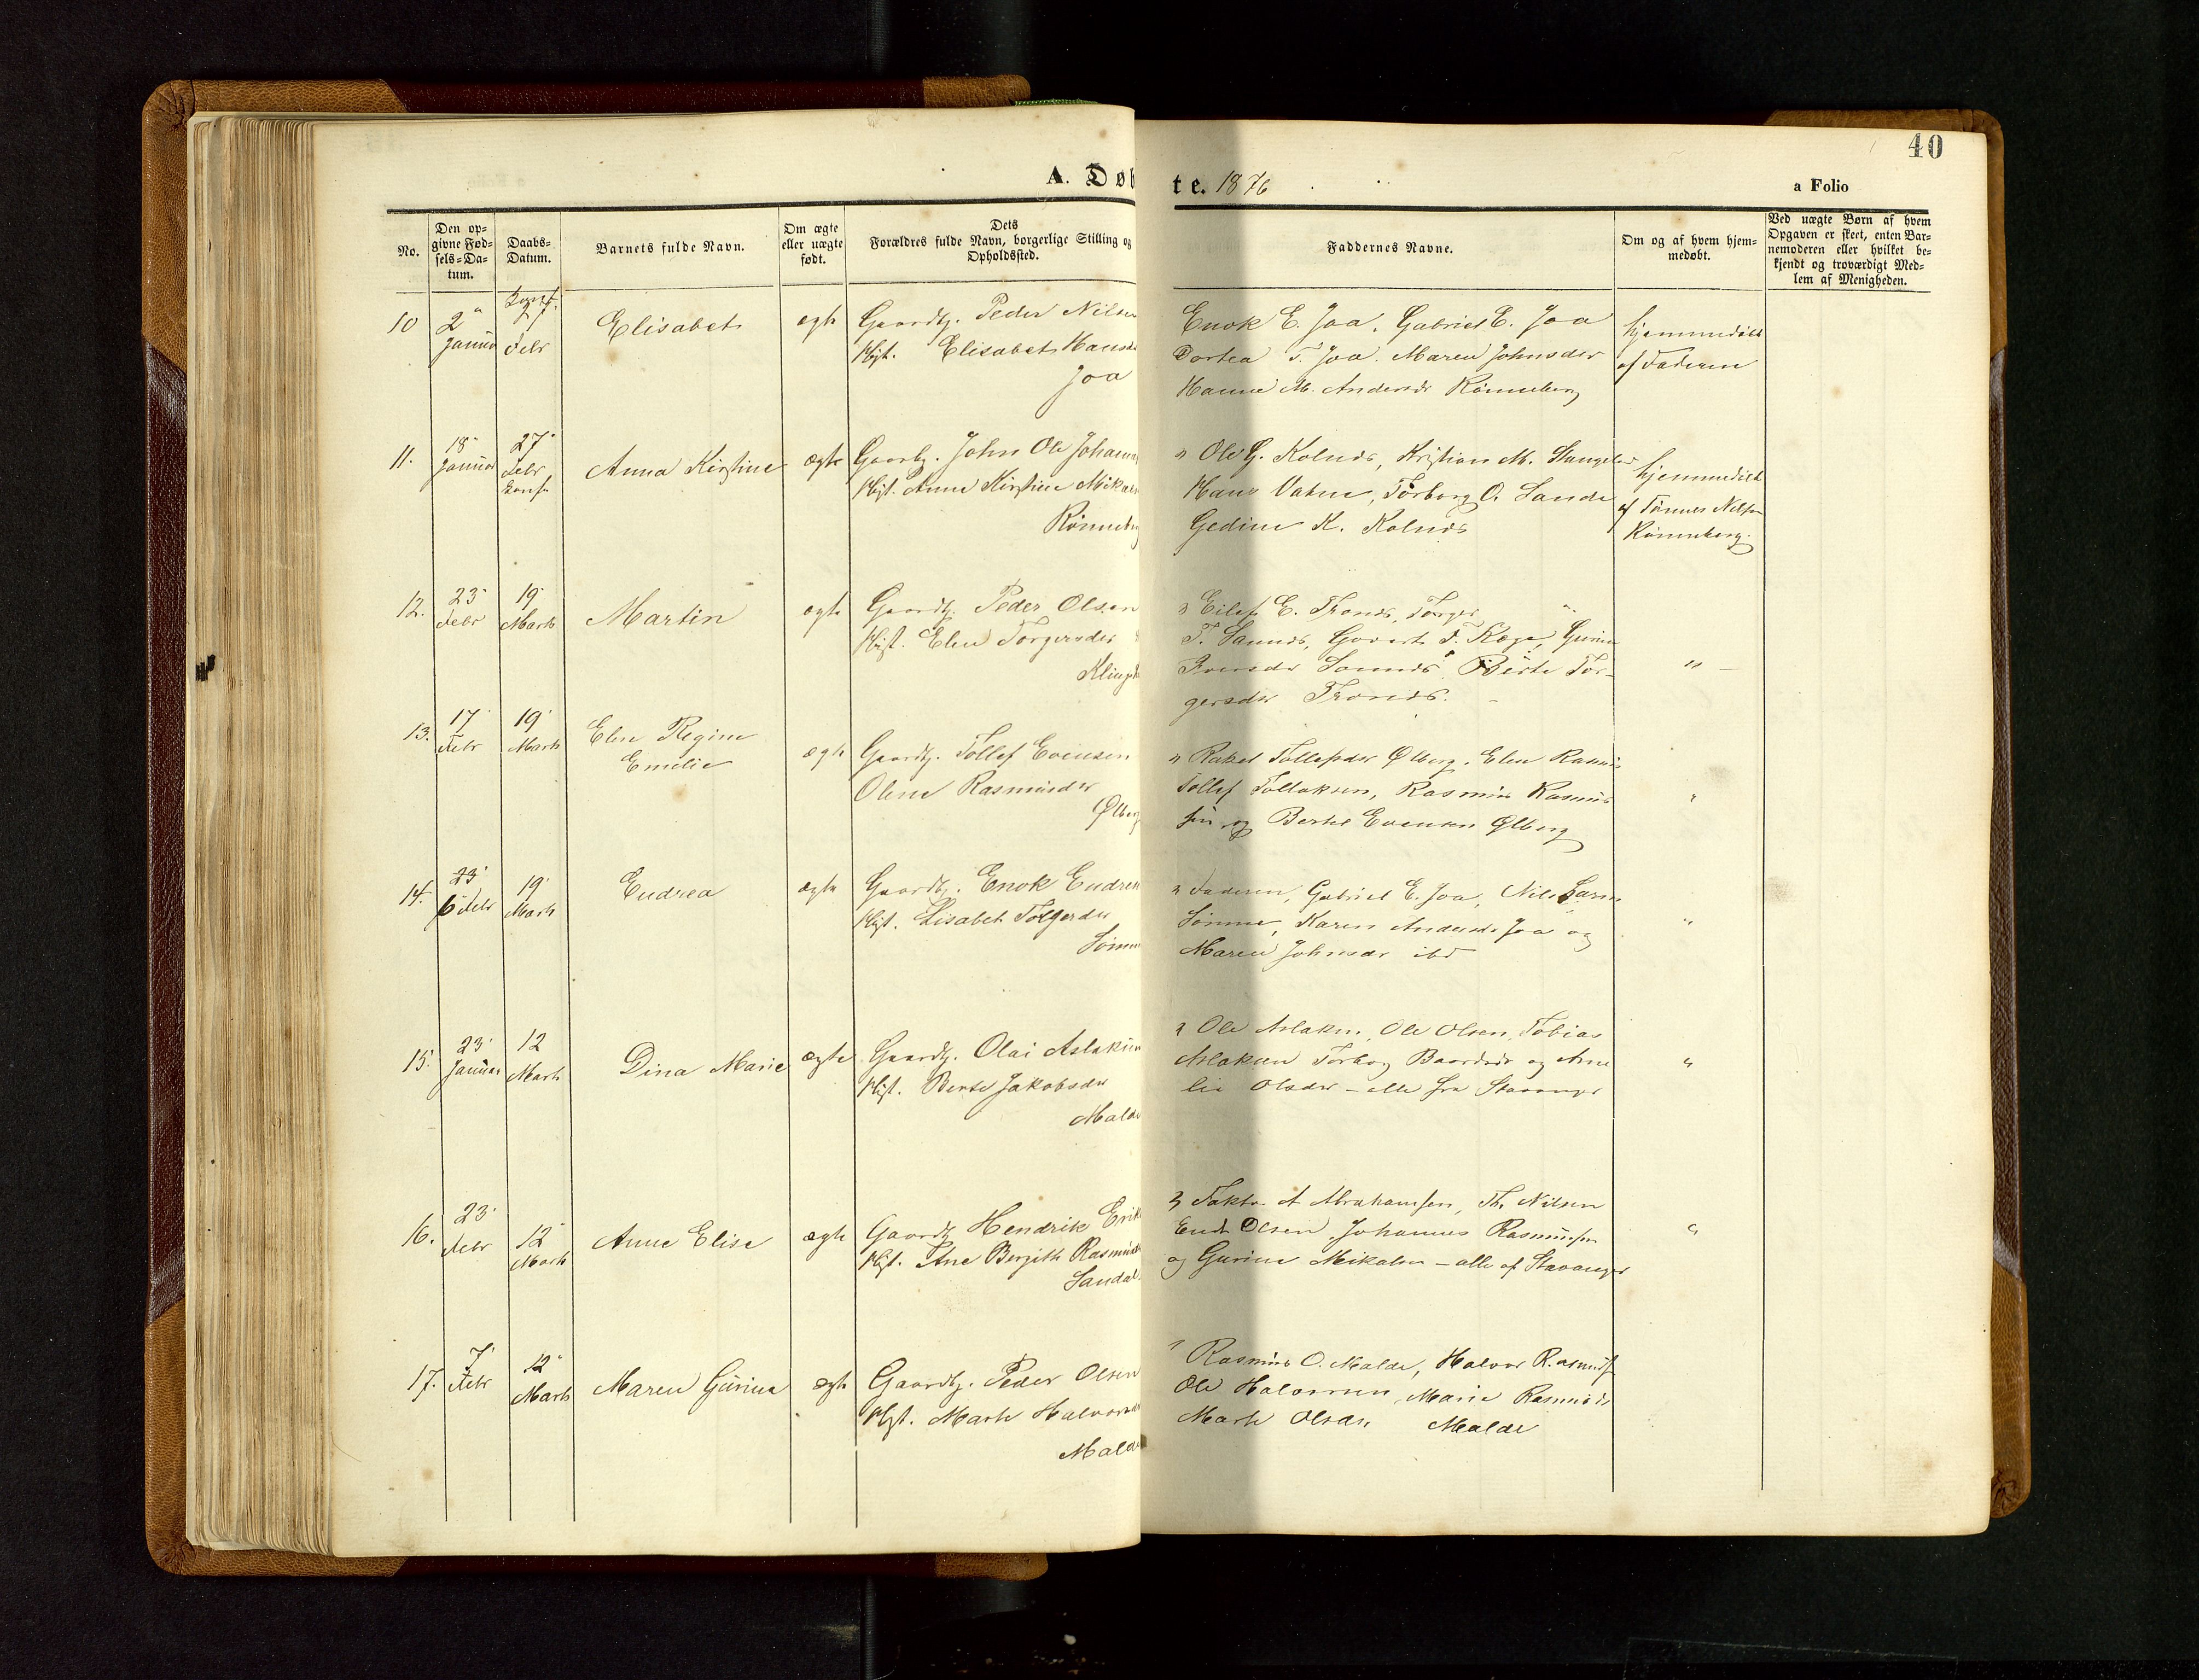 40
A. Døb
te. 1876
a Folio
No.
Den op-
givne Fød-
sels-Da-
tum.
Daabs-
Datum.
Barnets fulde Navn.
Om ægte
eller uægte
født.
Dets
Forældres fulde Navn, borgerlige Stilling og
Opholdssted.
Faddernes Navne.
Om og af hvem hjem-
medøbt.
Ved uægte Børn af hvem
Opgaven er skeet, enten Bar-
nemoderen eller hvilket be-
kjendt og troværdigt Med-
lem af Menigheden.
10
2
Januar
27
Febr
Elisabet
ægte
Gaardbr. Peder Nilsen
Hst. Elisabet Hansdr
Joa
Enok E. Joa, Gabriel E. Joa
Dortea T. Joa. Maren Johnsdr
Hanne M. Andersdr Rönneberg
hjemmedöbt
af Faderen
11.
18
Januar
27
Febr
Konf.
Anna Kirstine
ægte
Gaardbr. John Ole Johann
Hst. Anne Kirstine Mikals
Rönneberg
Ole G. Kolnes, Kristian M. Stangeland
Hans Vatne, Torborg O. Sande
Gedine K. Kolnes
hjemmedöbt
af Tönnes Nilsen
Rönneberg.
12.
23
Febr
19
Marts
Martin
ægte
Gaardbr. Peder Olsen
Hst. Elen Torgersdr
Eilef E. Fronds, Torger
T. Sannes, Govert T. Ræge, Gurine
Iversdr Sannes Berte Tor-
gersdr Fronds.
" -
13.
17
Febr
19
Marts
Elen Regine
Emelie
ægte
Gaardbr. Tollef Evensen
Olene Rasmusdr
Ølberg
Rakel Tollefsdr Ølberg. Elen Rasmus
Tollef Tollaksen, Rasmus Rasmus
sen og Bertel Evensen Ølberg
"
14.
23
6 Febr
19
Marts
Endrea
ægte
Gaardbr. Enok Endresen
Hst. Lisabet Tolgersdr
Sömme
Faderen, Gabriel E. Joa, Nils Larsen
Sömme, Karen Andersdr Joa og
Maren Johnsdr ibd
"
15.
23
Januar
12
Marts
Dina Marie
ægte
Gaardbr. Olai Aslaksen
Hst. Berte Jakobsdr
Malde
Ole Aslaksen, Ole Olsen, Tobias
Aslaksen Torborg Baardsdr og Ame
lie Olsdr - alle fra Stavanger
"
16.
23
Febr
12
Marts
Anne Elise
ægte
Gaardbr Hendrik Erik
Hst. Ane Bergith Rasmusdr
Sandal
Faktor A Abrahamsen, Th. Nilsen
Endr Olsen Johannes Rasmussen
og Gurine Mikalsen - alle af Stavanger
"
17.
7
Febr
12
Marts
Maren Gurine
ægte
Gaardbr. Peder Olsen
Hst. Marte Halvorsdr
Malde
Rasmus O. Malde, Halvor Rasmuss
Ole Halvorsen, Marie Rasmusdr
Marte Olsdr Malde